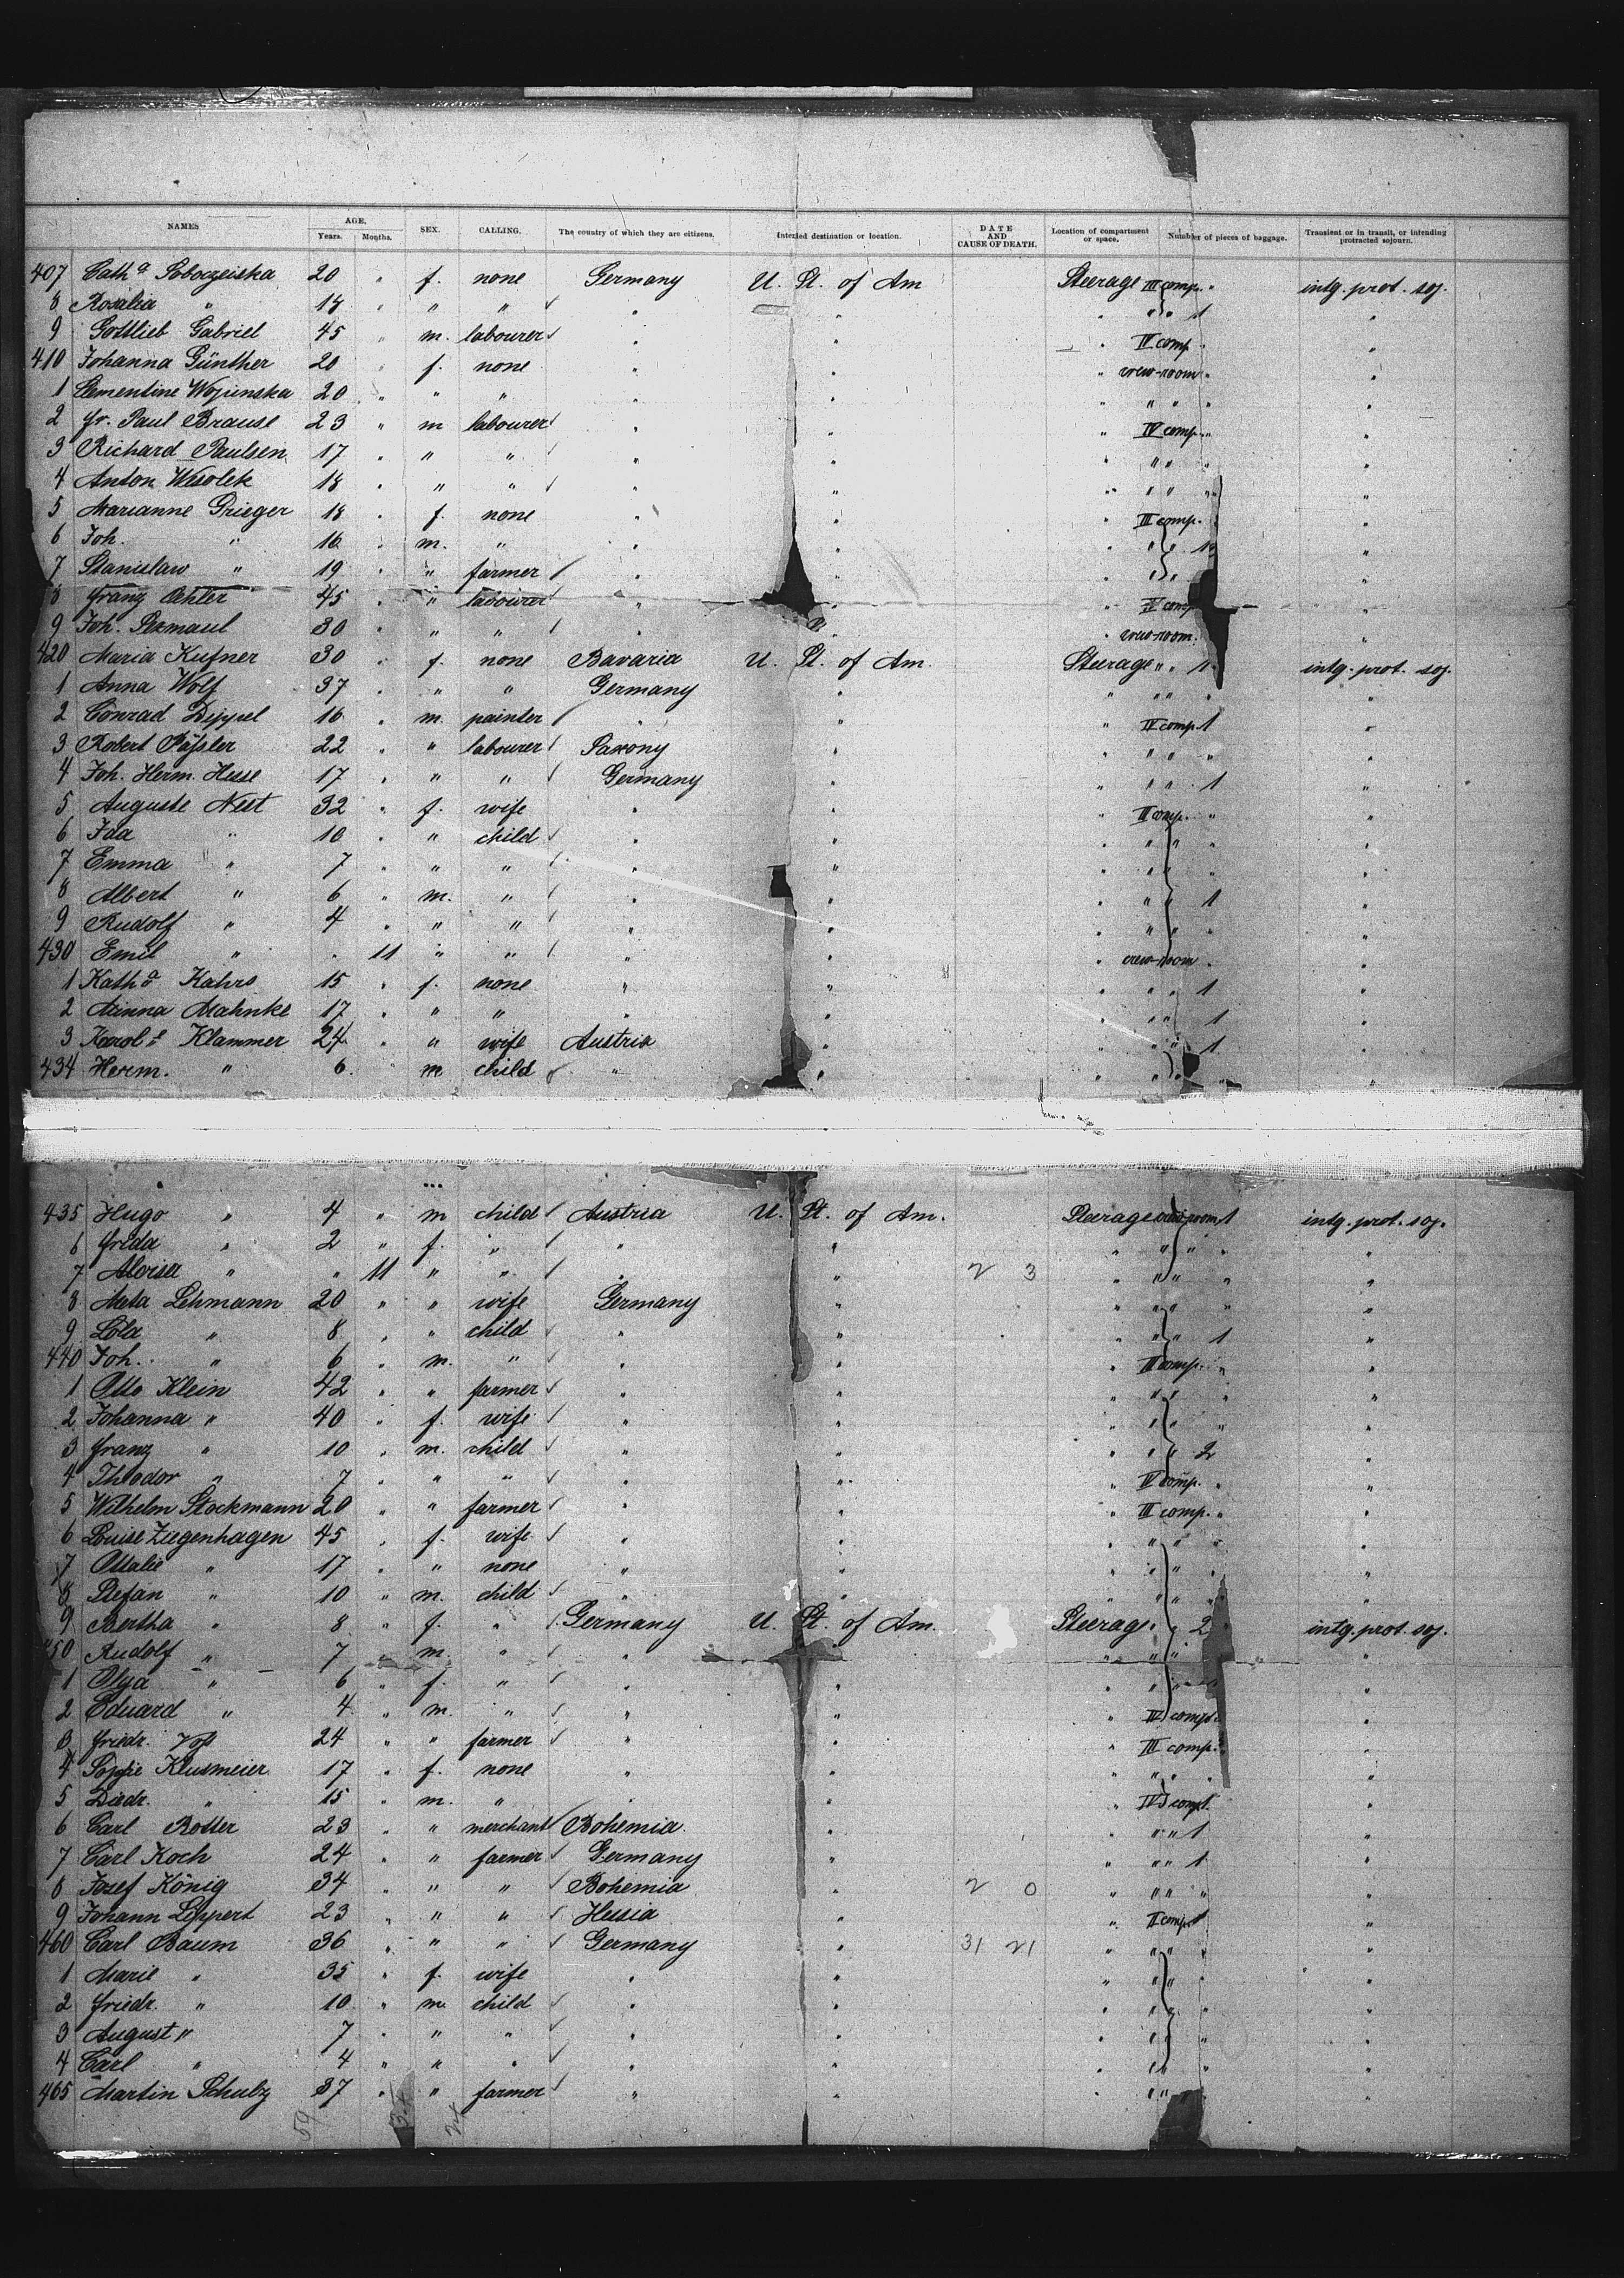 NAMES AGE. Years. Months. SEX. CALLING. The country of which they are citizens. Intended destination or location. DATE AND CAUSE OF DEATH. Location of compartment or space. Number of pieces of baggage. Transient or in transit, or intending protracted sojourn.
407 Cath.a 20 " f. none Germany U. St. of Am Steerage III comp. " intg. prot. soj.
8 Rosalia " 18 " " " " " " " 1 "
9 Gottlieb Gabriel 45 " m. labourer " " " IV comp. " "
410 Johanna Günther 20 " f. none " " " crew-room " "
1 Clementine 20 " " " " " " " " "
2 Fr. Paul Brause 23 " m labourer " " " IV comp. " "
3 Richard Paulsen 17 " " " " " " " " "
4 Anton Wesolek 18 " " " " " " " " "
5 Marianne Grieger 18 " f. none " " " III comp. "
6 Joh. " 16 " m. " " " " " "
7 Stanislaw " 19 " " farmer " " " " "
8 Franz Oehler 45 " " labourer " " " comp "
9 Joh. 30 " " " " " " crew-room. "
420 Maria Kufner 30 " f. none Bavaria U. St. of Am. Steerage " " 1 intg. prot. soj.
1 Anna Wolf 37 " " " Germany " " " " "
2 Conrad Dippel 16 " m. painter " " " IV comp. 1 "
3 Robert Päßler 22 " " labourer Saxony " " " " " "
4 Joh. Herm. Hesse 17 " " " Germany " " " " 1 "
5 Auguste Nest 32 " f. wife " " " II comp. " "
6 Ida " 10 " " child " " " " " " "
7 Emma " 7 " " " " " " " " " "
8 Albert " 6 " m. " " " " " " 1 "
9 Rudolf " 4 " " " " " " " " " "
430 Emil " " 11 " " " " " crew-room " "
1 Kath.a Kahrs 15 " f. none " " " " " 1 "
2 Minna Mahnke 17 " " " " " " " " 1 "
3 Karol.e Klammer 24 " " wife Austria " " " " 1 "
434 Herm. " 6 m child " " " " "
435 Hugo " 4 " m child Austria U. St. of Am. Steerage crew-room 1 intg. prot. soj.
6 Frida " 2 " f. " " " " " " " "
7 Aloisa " " 11 " " " " 2 3 " " " " "
8 Meta Lehmann 20 " " wife Germany " " " " " "
9 Lola " 8 " " child " " " " " 1 "
440 Joh. " 6 " m. " " " " II comp. " "
1 Otto Klein 42 " " farmer " " " " " " "
2 Johanna " 40 " f. wife " " " " " " "
3 Franz " 10 " m. child " " " " " 2 "
4 Theodor " 7 " " " " " " IV comp. " "
5 Wilhelm Stockmann 20 " " farmer " " " III comp. " "
6 Louise Ziegenhagen 45 " f. wife " " " " " " "
7 Ottalie " 17 " " none " " " " " " "
8 Stefan " 10 " m. child " " " " " " "
9 Bertha " 8 " f. " Germany U. St. of Am. Steerage " " 2 intg. prot. soj.
450 Rudolf " 7 " m. " " " " " " "
1 Olga " 6 " f. " " " " " " "
2 Eduard " 4 " m. " " " " IV comp. "
3 Friedr. Voß 24 " " farmer " " " III comp. "
4 Sophie Klusmeier 17 " f. none " " " " " " "
5 Diedr. " 15 " m. " " " " IV comp. 1 "
6 Carl Rotter 23 " " merchant Bohemia. " " " " 1 "
7 Carl Koch 24 " " farmer Germany " " " " 1 "
8 Josef König 34 " " " Bohemia " 2 0 " " " " "
9 Johann Lippert 23 " " " Hessia " " II comp. "
460 Carl Baum 36 " " " Germany " 31 21 " " " " "
1 Marie " 35 " f. wife " " " " " " "
2 Friedr. " 10 " m. child " " " " " " "
3 August " 7 " " " " " " " " " "
4 Carl " 4 " " " " " " " " " "
465 Martin Schulz 37 " " farmer " " " " " "
59